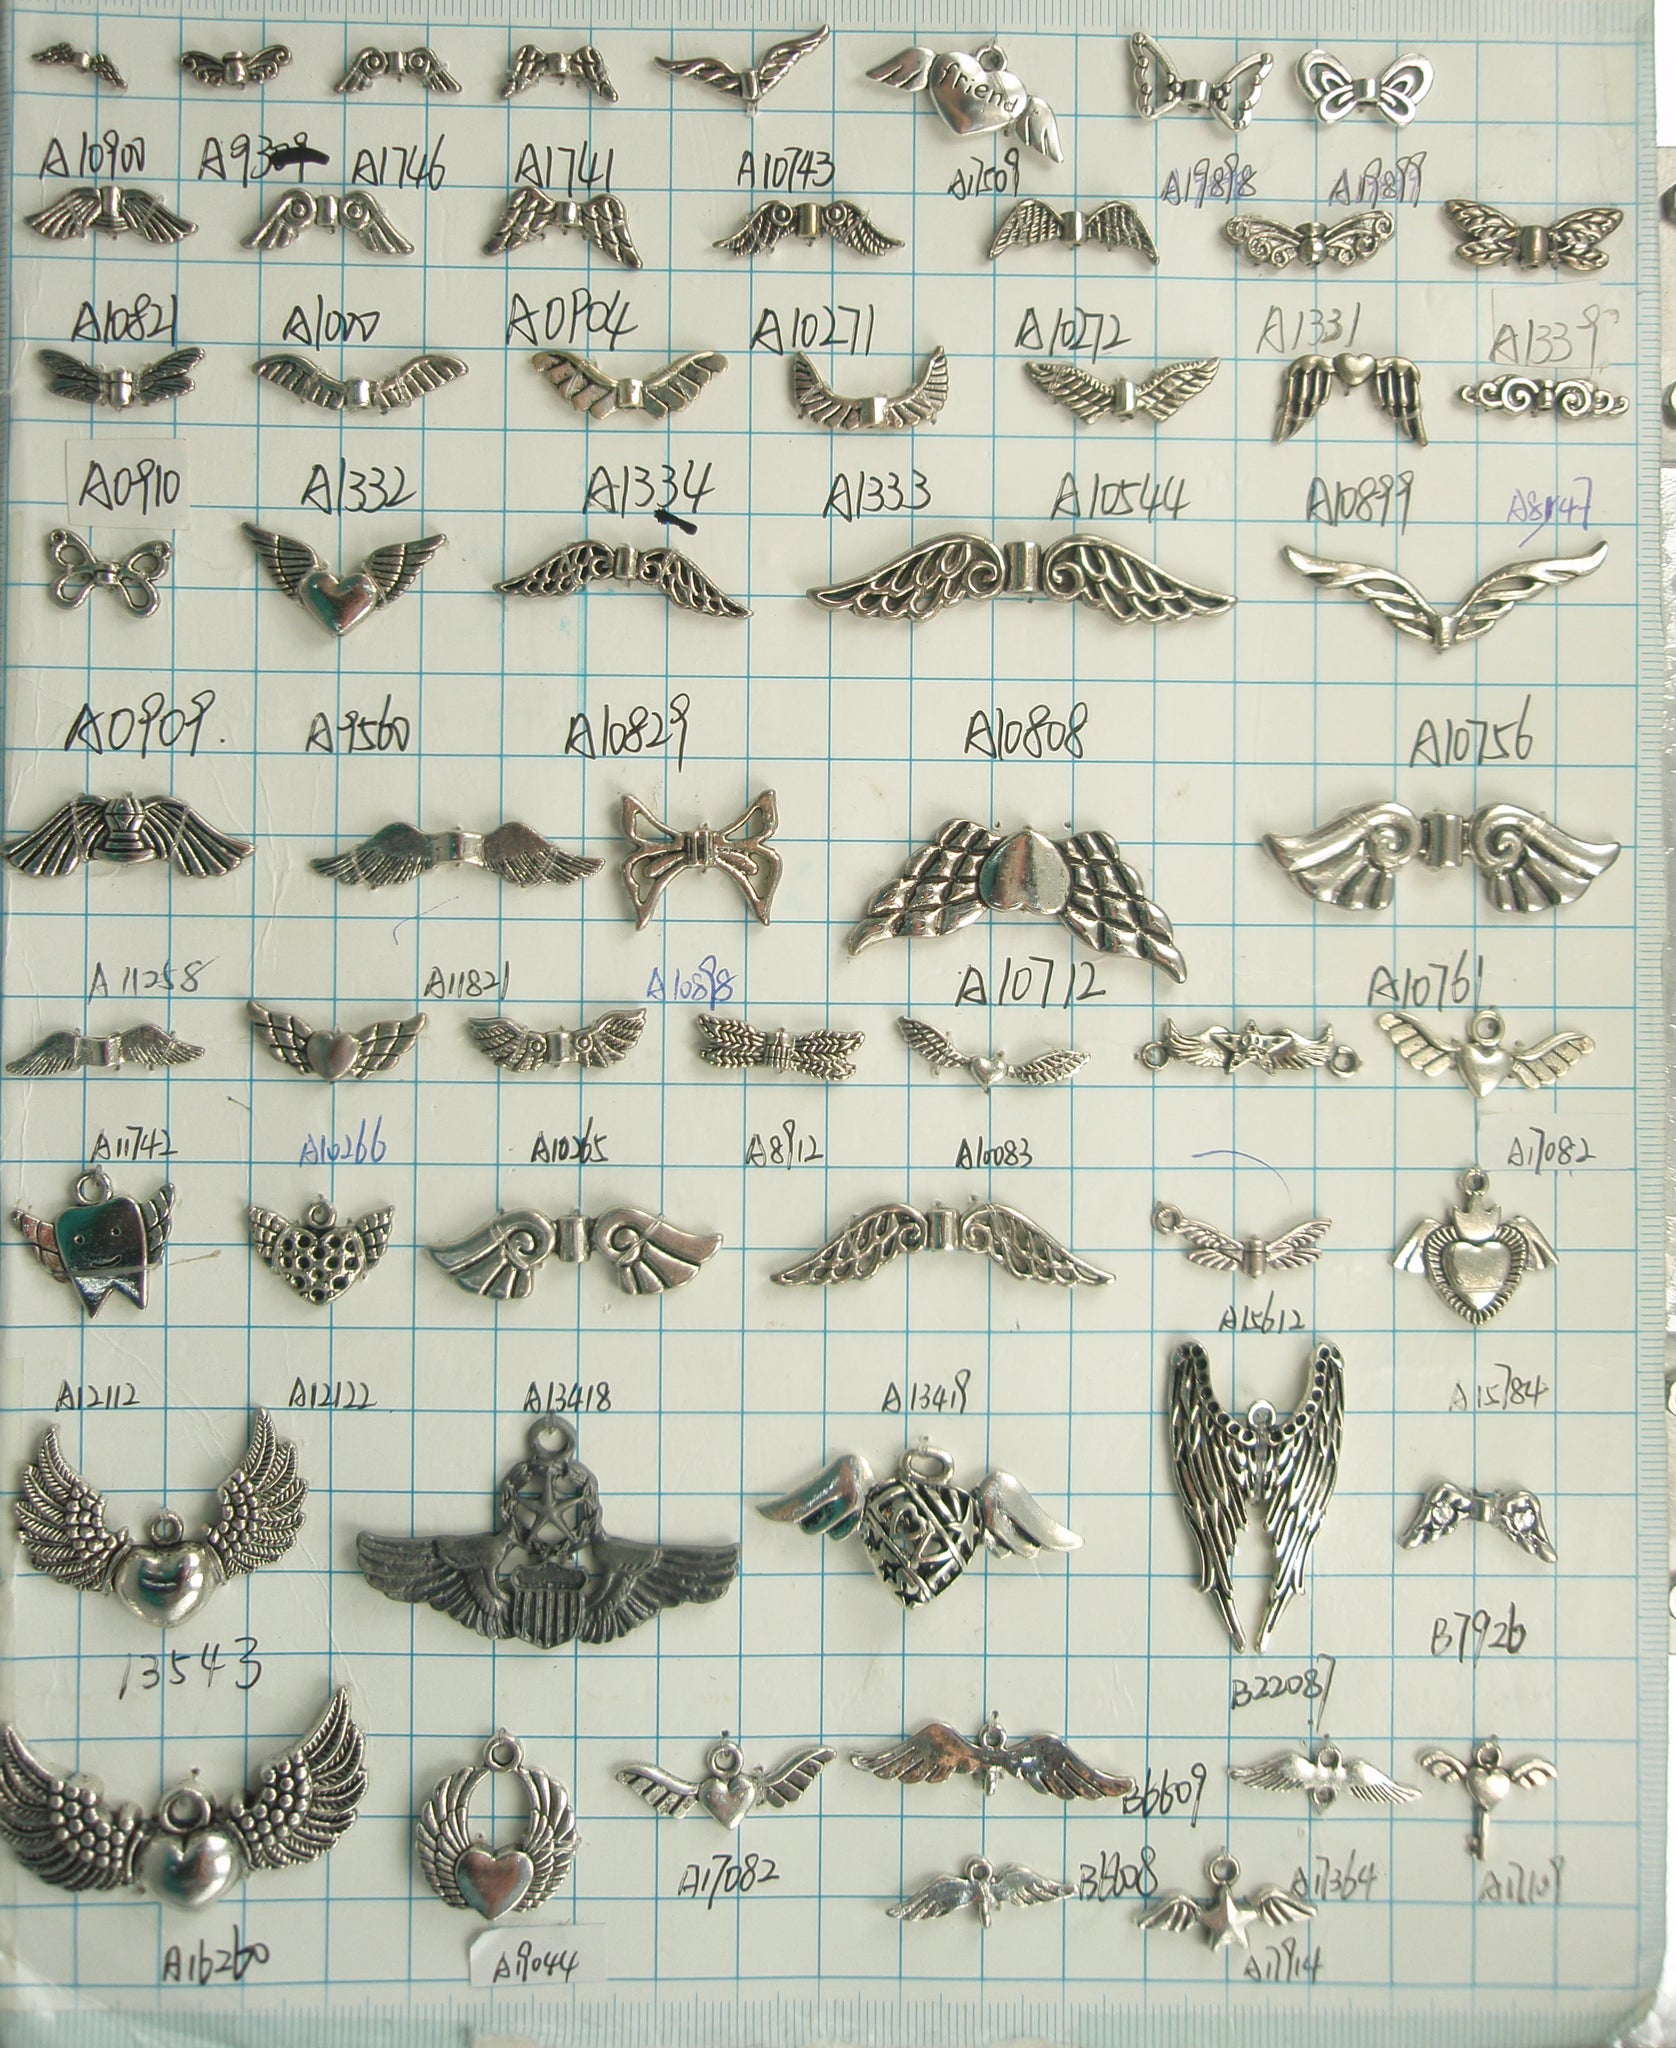 friend
A10900 A1746 A1741 A10743 A17509 A19898 A19899
A10821 A1000 A0904 A10271 A10272 A1331 A1339
A0910 A1332 A1334 A1333 A10544 A10899
A0909. A9560 A10829 A10808 A10756
A11258 A11821 A10898 A10712 A10761
A11742 A10266 A10265 A8912 A10083 A17082
A15612
A12112 A12122 A13418 A13419 A15784
B7926
13543 B22087
B6609
A17082 B6608 A17364
A16260 A19044 A17914